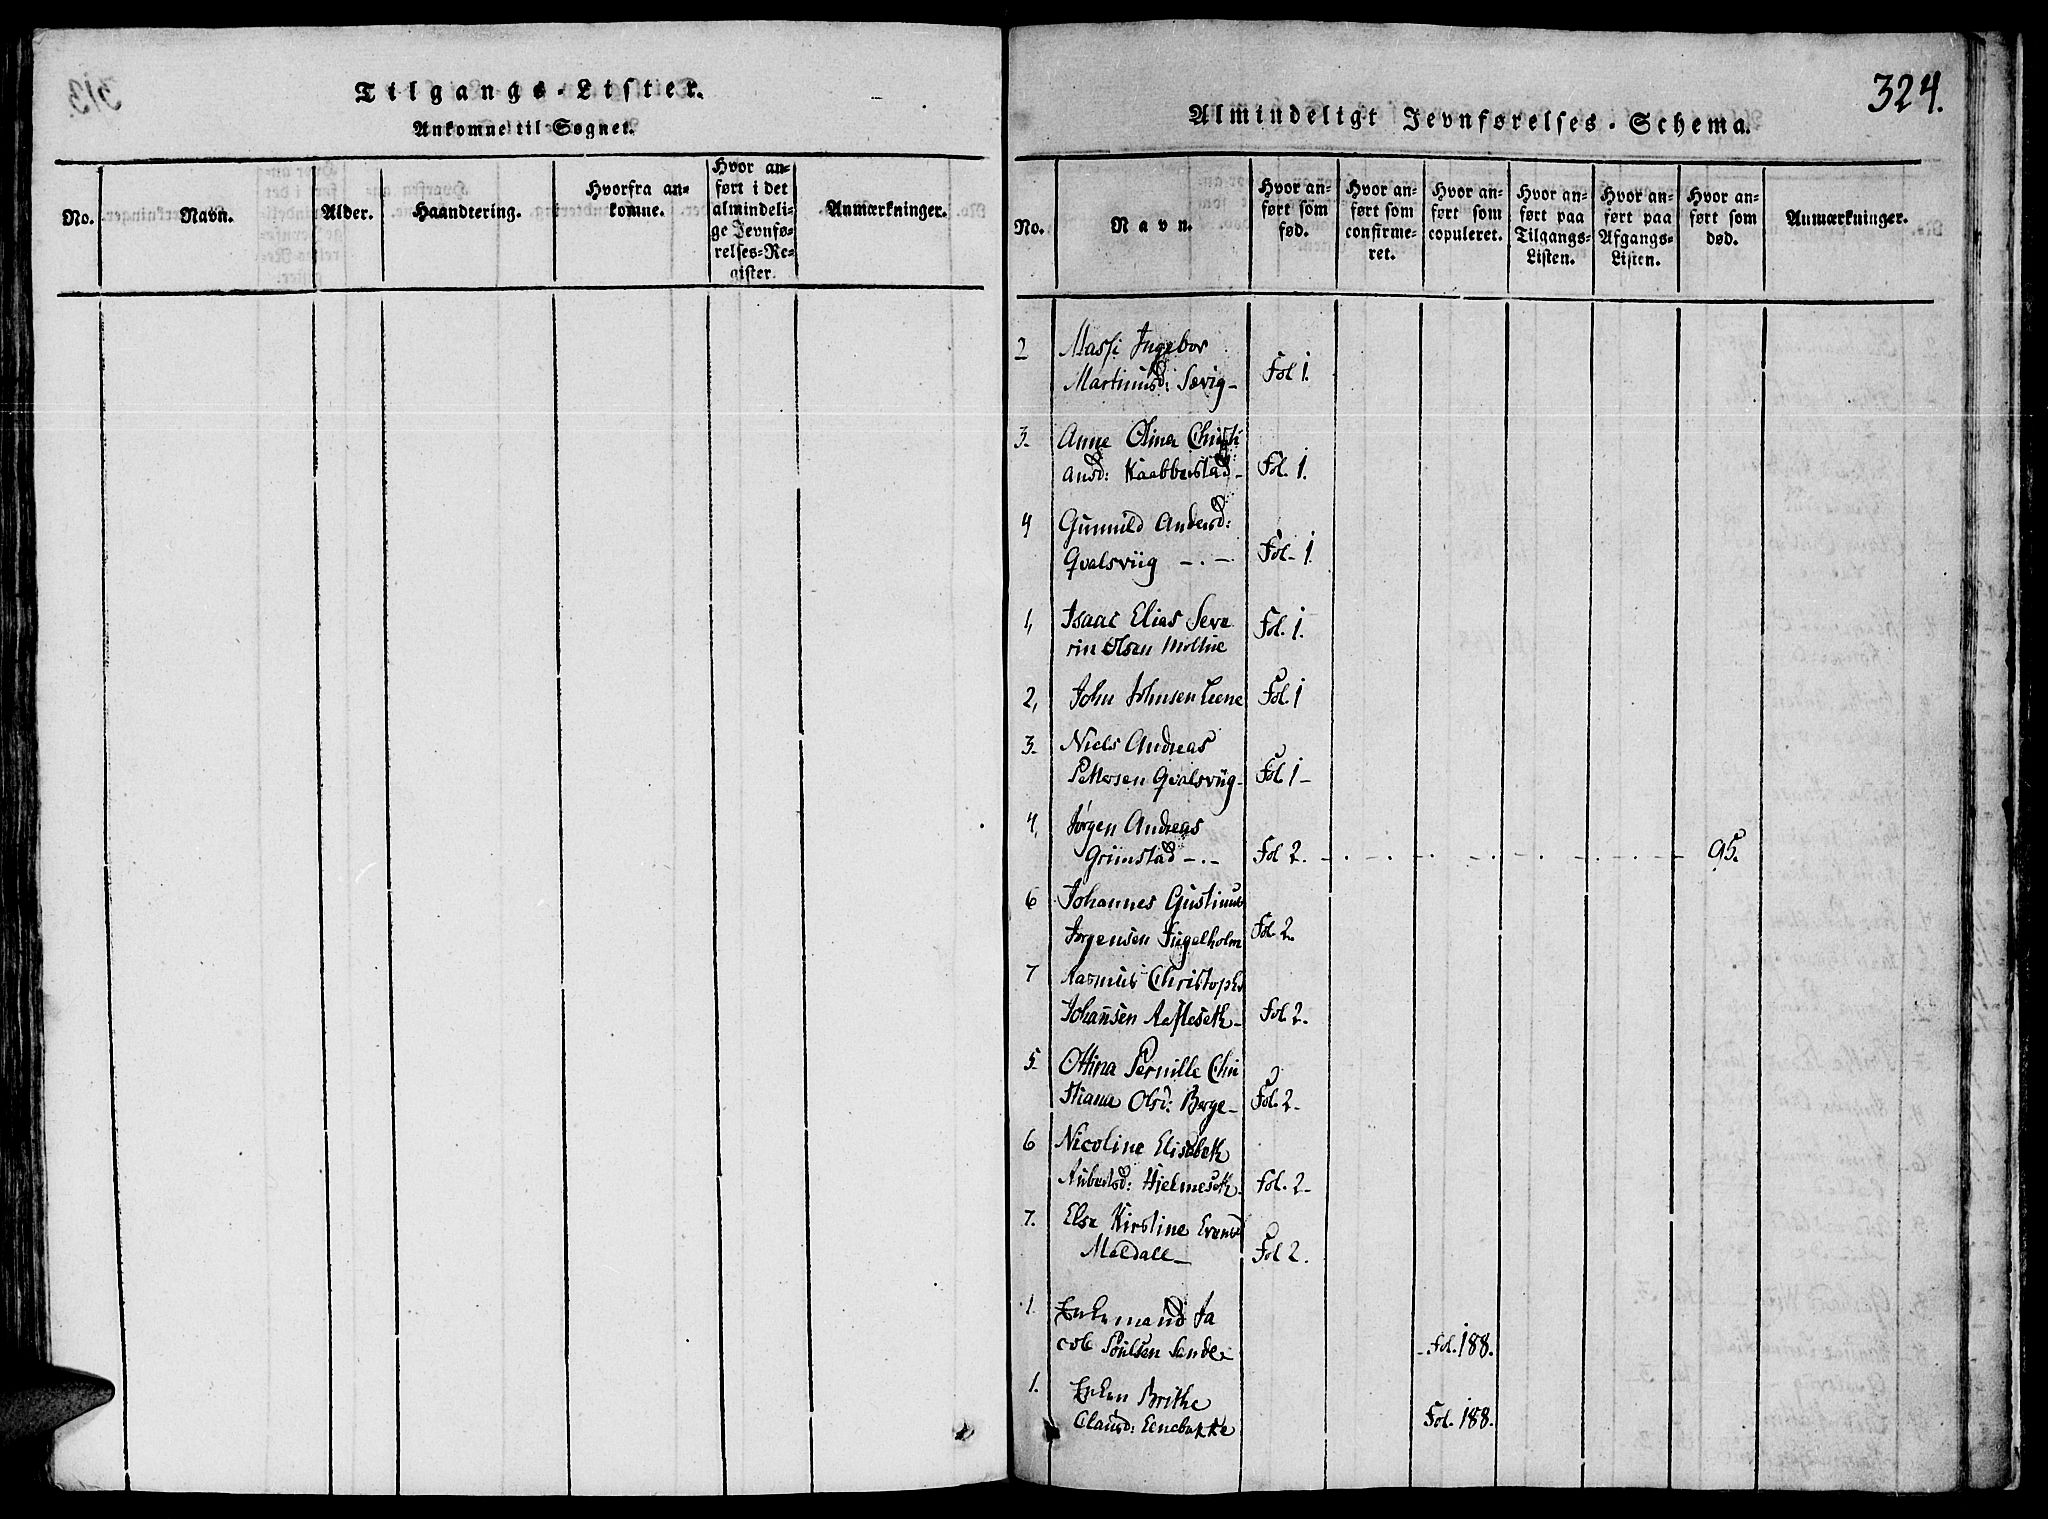 Tilgangs-Lister.
Ankomne til Sognet.
No.
Navn.
Alder.
Haandtering.
Hvorfra an-
komne.
Hvor an-
ført i det
almindeli-
ge Jevnfø-
relses-Re-
gister.
Anmærkninger.
324.
Almindeligt Jevnførelses-Schema.
No.
Navn.
Hvor an-
ført som
fød.
Hvor an-
ført som
confirme-
ret.
Hvor an-
ført som
copuleret.
Hvor an-
ført paa
Tilgangs-
Listen.
Hvor an-
ført paa
Afgangs-
Listen.
Hvor an-
ført som
død.
Anmærkninger.
2 Massi Ingebor
Martinusd: Sævig- Fol 1.
3. Anne Olina Christi
ansd: Kaabbestad- Fol. 1.
4 Gunnild Andersd:
Qvalsviig - . - Fol- 1
1, Isaac Elias Seve
rin Olsen Moltue Fol. 1.
2, John Johnsen Leene Fol. 1
3- Niels Andreas
Pettersen Qvalsviig- Fol. 1-
4, Jørgen Andreas
Grimstad -.- Fol 2. 95.
6 Johannes Gustinus
Jørgensen Jugelholm Fol. 2.
7 Rasmus Christopher
Johansen Aafleseth- Fol. 2-
5- Ottina Pernille Chri
stiana Olsd: Berge- Fol. 2-
6 Nicoline Elisabeth
Aubertsd: Hjelmeseth- Fol. 2-
7. Else Kirstine Evensd
Mældall- Fol 2.
1. Enkemand Ja
cob Poulsen Sande- Fol. 188.
1. Enken Brithe
Clausd: Eenebakke Fol. 188.